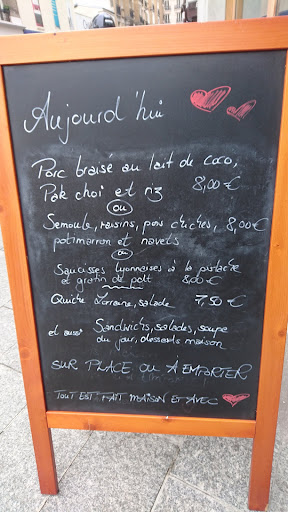 Aujourd'hui
Porc braisé au lait de coco,
Pak choï et riz 8,00€
ou
Semoule, raisins, pois chiches, 8,00€
potimarron et navets
ou
Saucisses lyonnaises à la pistache
et gratin de 8,00€
Quiche Lorraine, salade 7,50€
et aussi Sandwichs, salades, soupe
du jour, desserts maison
SUR PLACE OU À EMPORTER
TOUT EST FAIT MAISON ET AVEC